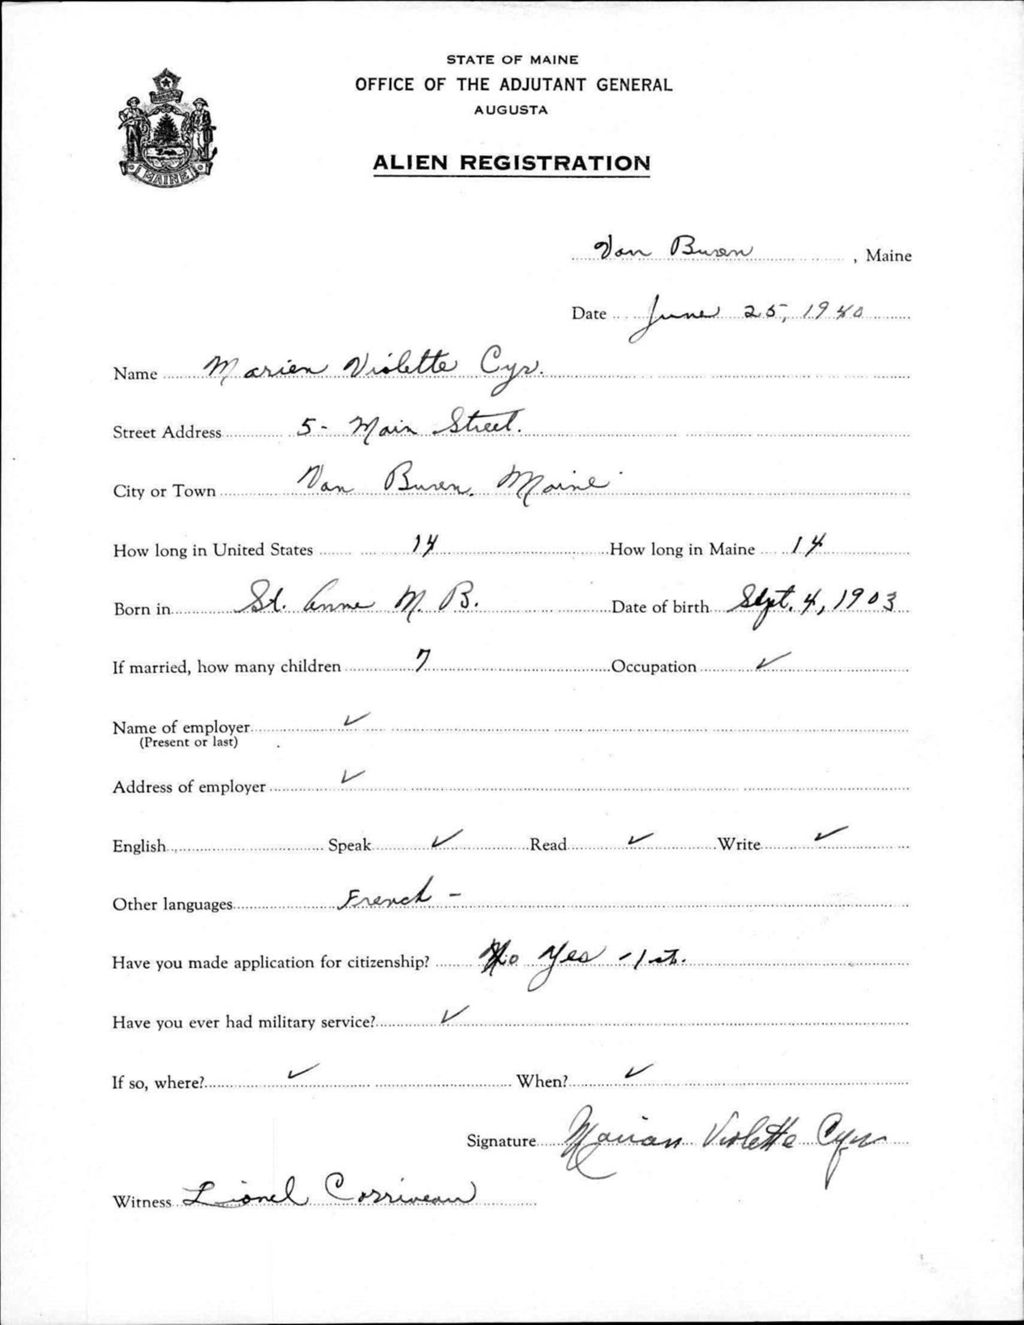 STATE OF MAINE
OFFICE OF THE ADJUTANT GENERAL
AUGUSTA
ALIEN REGISTRATION
MAINE
Van Buren, Maine
Date June 25, 1940
Name Marien Violette Cyr.
Street Address 5- Main Street.
City or Town Van Buren, Maine
How long in United States 14 How long in Maine 14
Born in St. Anne M. B. Date of birth Sept. 4, 1903
If married, how many children 7 Occupation ✓
Name of employer ✓
(Present or last)
Address of employer ✓
English Speak ✓ Read ✓ Write ✓
Other languages French -
Have you made application for citizenship? No Yes - 1st.
Have you ever had military service? ✓
If so, where? ✓ When? ✓
Signature Marian Violette Cyr
Witness Lionel Corriveau